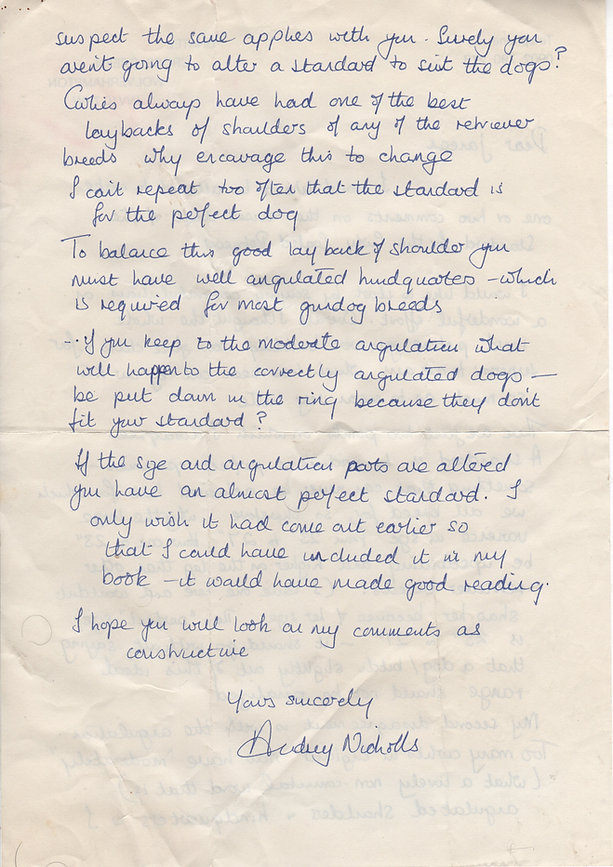 suspect the same applies with you. Surely you
aren't going to alter a standard to suit the dogs?
Curlies always have had one of the best
laybacks of shoulders of any of the retriever
breeds why encourage this to change
I can't repeat too often that the standard is
for the perfect dog
To balance this good lay back of shoulder you
must have well angulated hindquaters - which
is required for most gundog breeds
- If you keep to the moderate angulation what
will happen to the correctly angulated dogs -
be put down in the ring because they don't
fit your standard?
If the size and angulation parts are altered
you have an almost perfect standard. I
only wish it had come out earlier so
that I could have included it in my
book - it would have made good reading.
I hope you will look on my comments as
constructive
Yours sincerely
Audrey Nicholls